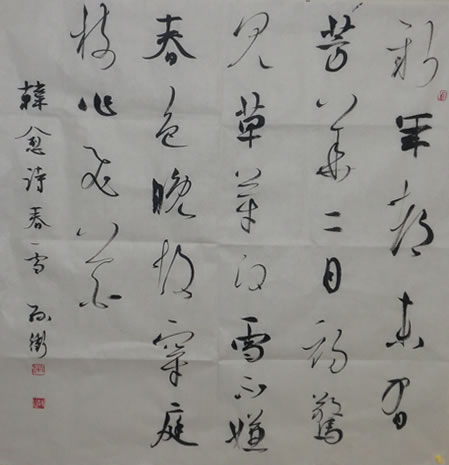 新年都未有
芳華二月初驚
見草芽白雪却嫌
春色晚故穿庭
樹作飛花
韓愈詩春雪